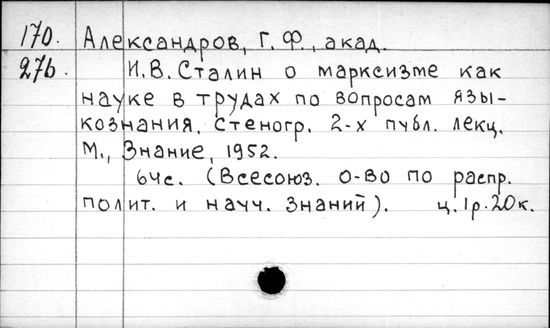 170. Александров, Г. Ф., акад.
276. И.В. Сталин о марксизме как
науке в трудах по вопросам язы-
кознания. Стеногр. 2-х публ. лекц.
М., Знание, 1952.
64с. (Всесоюз. о-во по распр.
полит. и науч. знаний). ц. 1р.20к.